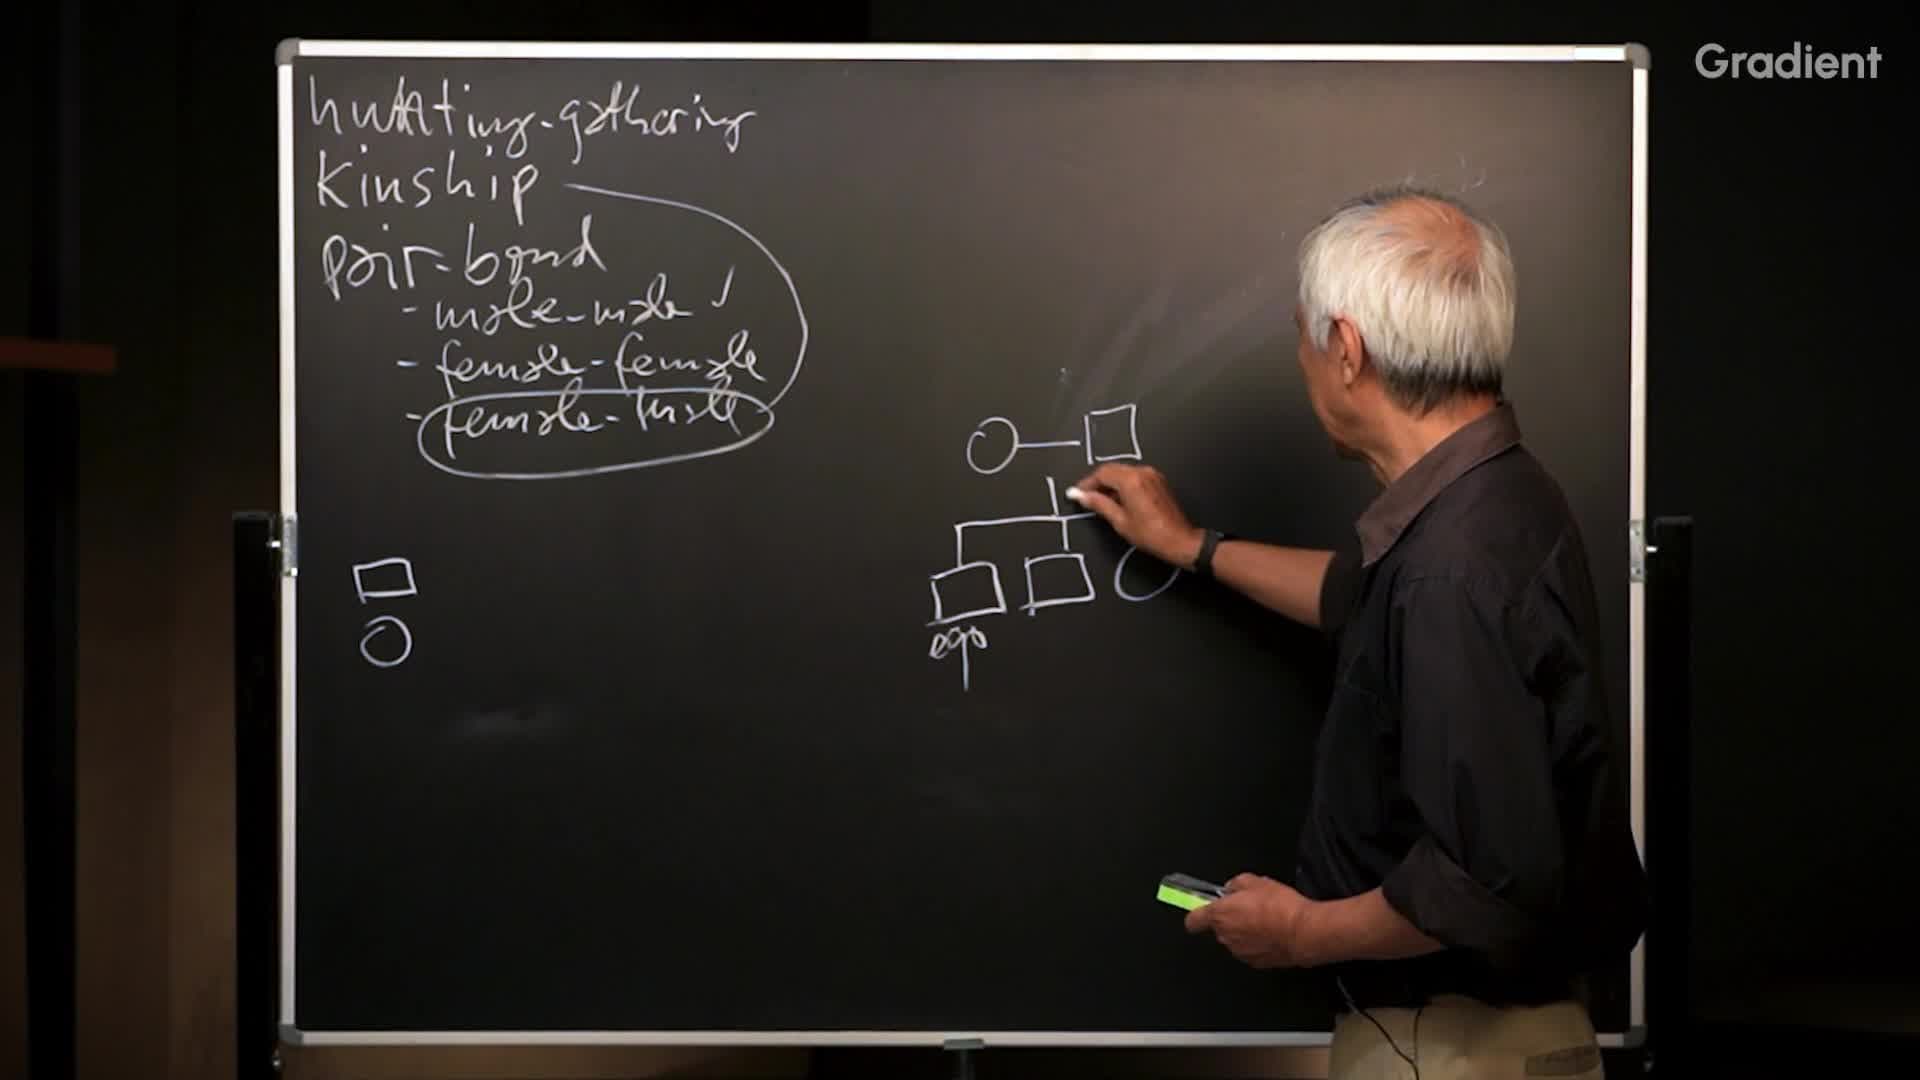 Gradient
hunting-gathering
kinship
pair-bond
- male-male ✓
- female-female
- female-male
ego